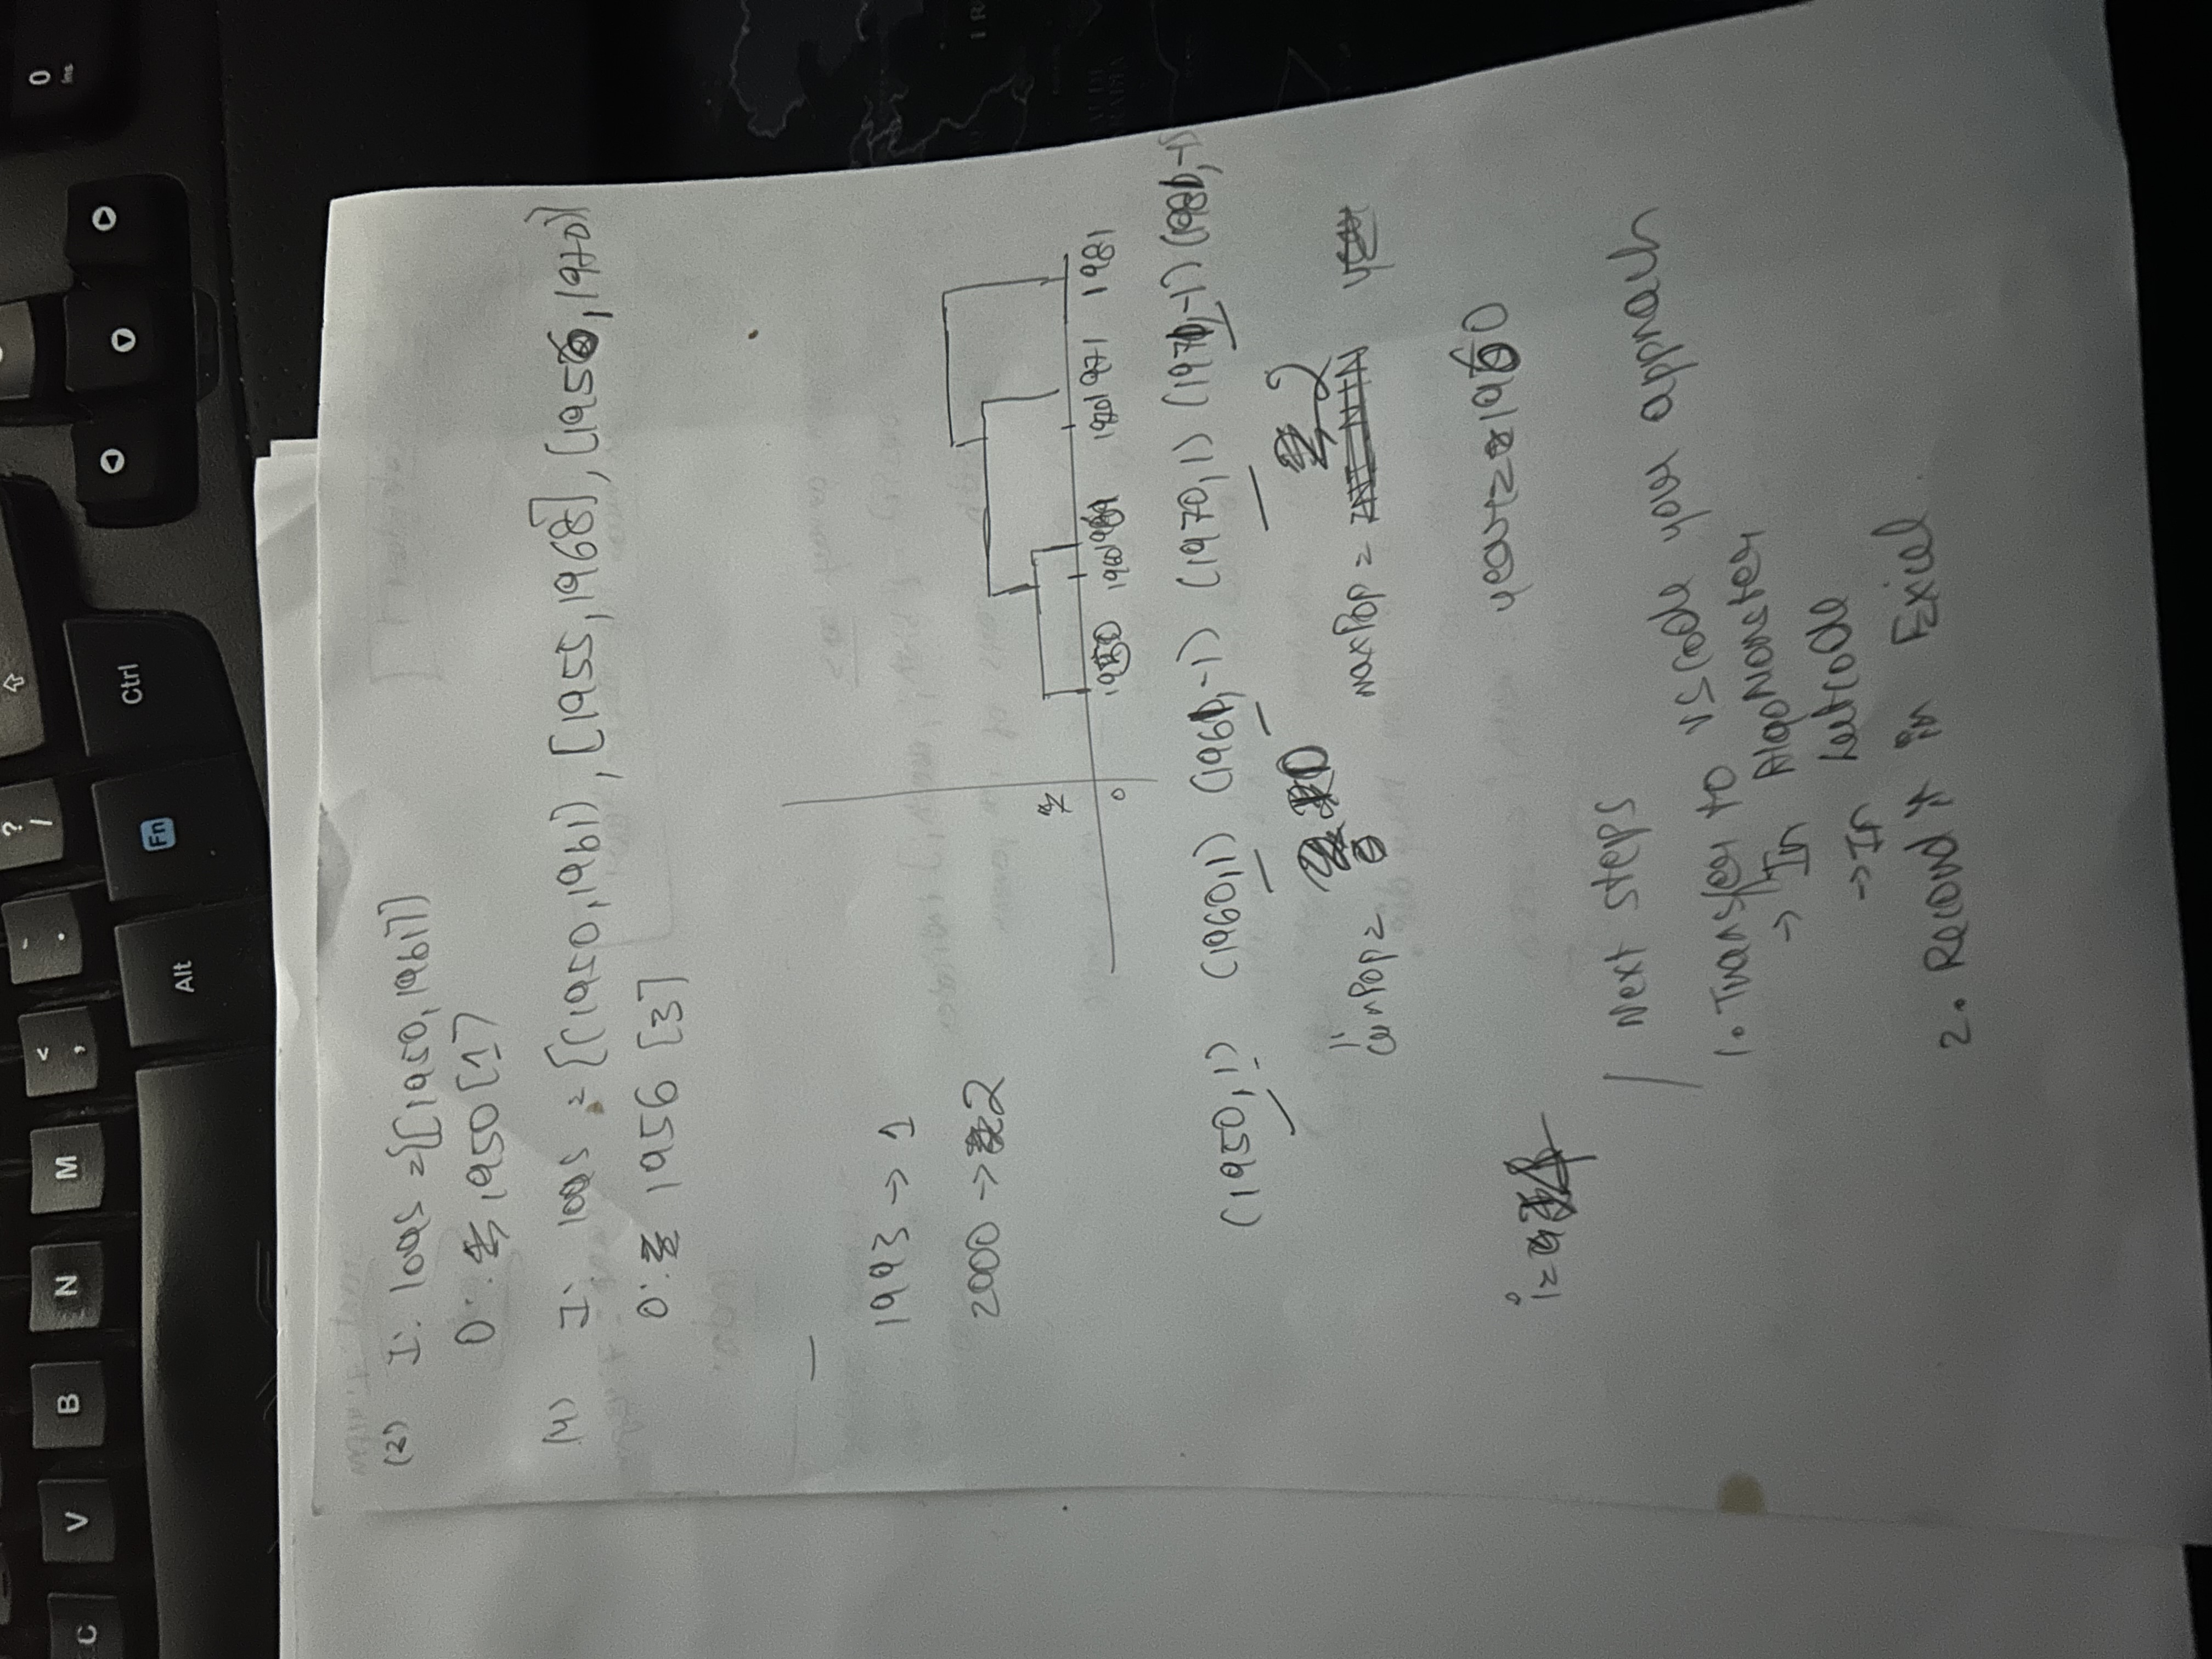 C V B N M < , . ? /
0 Ins
Alt Fn Ctrl
(3) I: logs = {[1950, 1961]}
O: 1950 [1]
(4) I: logs = {(1950, 1961), [1955, 1968], [1956, 1970]}
O: 1956 [3]
1993 → 1
2000 → 2
0 1950 1960 1961 1970 1971 1981
(1950, 1) (1960, 1) (1961, -1) (1970, 1) (1971, -1) (1981, -1)
0 2
currPop = maxPop = INT_MIN year
year = 1960
i =
Next steps
1. Transfer to vscode your approach
→ In AlgoMonster
→ In Leetcode
2. Record it in Excel.